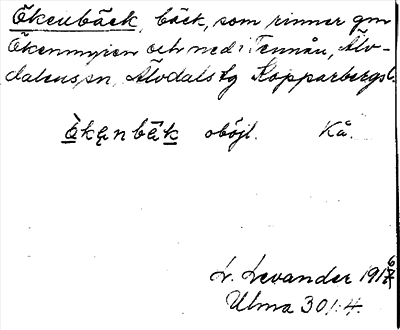 Ökenbäck, bäck, som rinner gm
Ökenmyren och ned i Tennån, Älv-
dalens sn, Älvdals tg Kopparbergs l.
ö̀kęnbäk oböjl. Kå.
L. Levander 1916
Ulma 301:4.